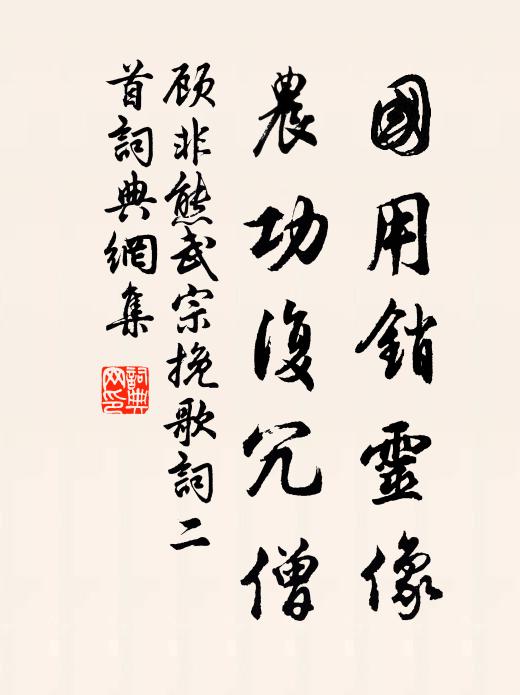 國用銷靈像
農功復冗僧
顾非熊武宗挽歌詞二
首詞典網集
詞典
网印